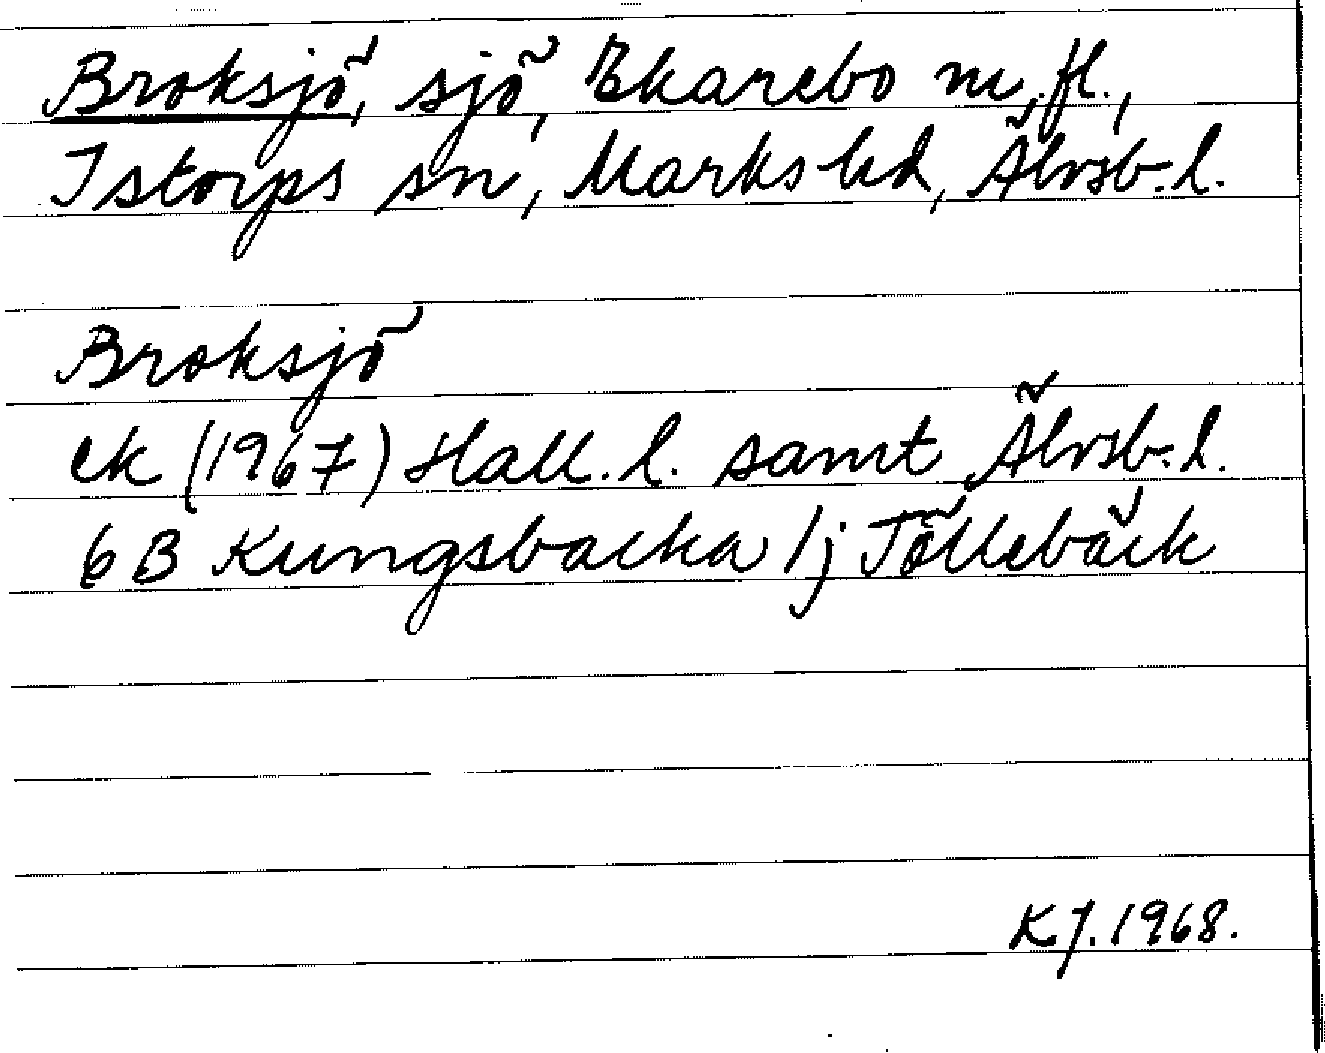 Broksjö, sjö, Ekarebo m.fl.,
Istorps sn, Marks hd, Älvsb. l.
Broksjö
ek (1967) Hall. l. samt Älvsb. l.
6 B Kungsbacka 1j Töllebäck
KJ. 1968.